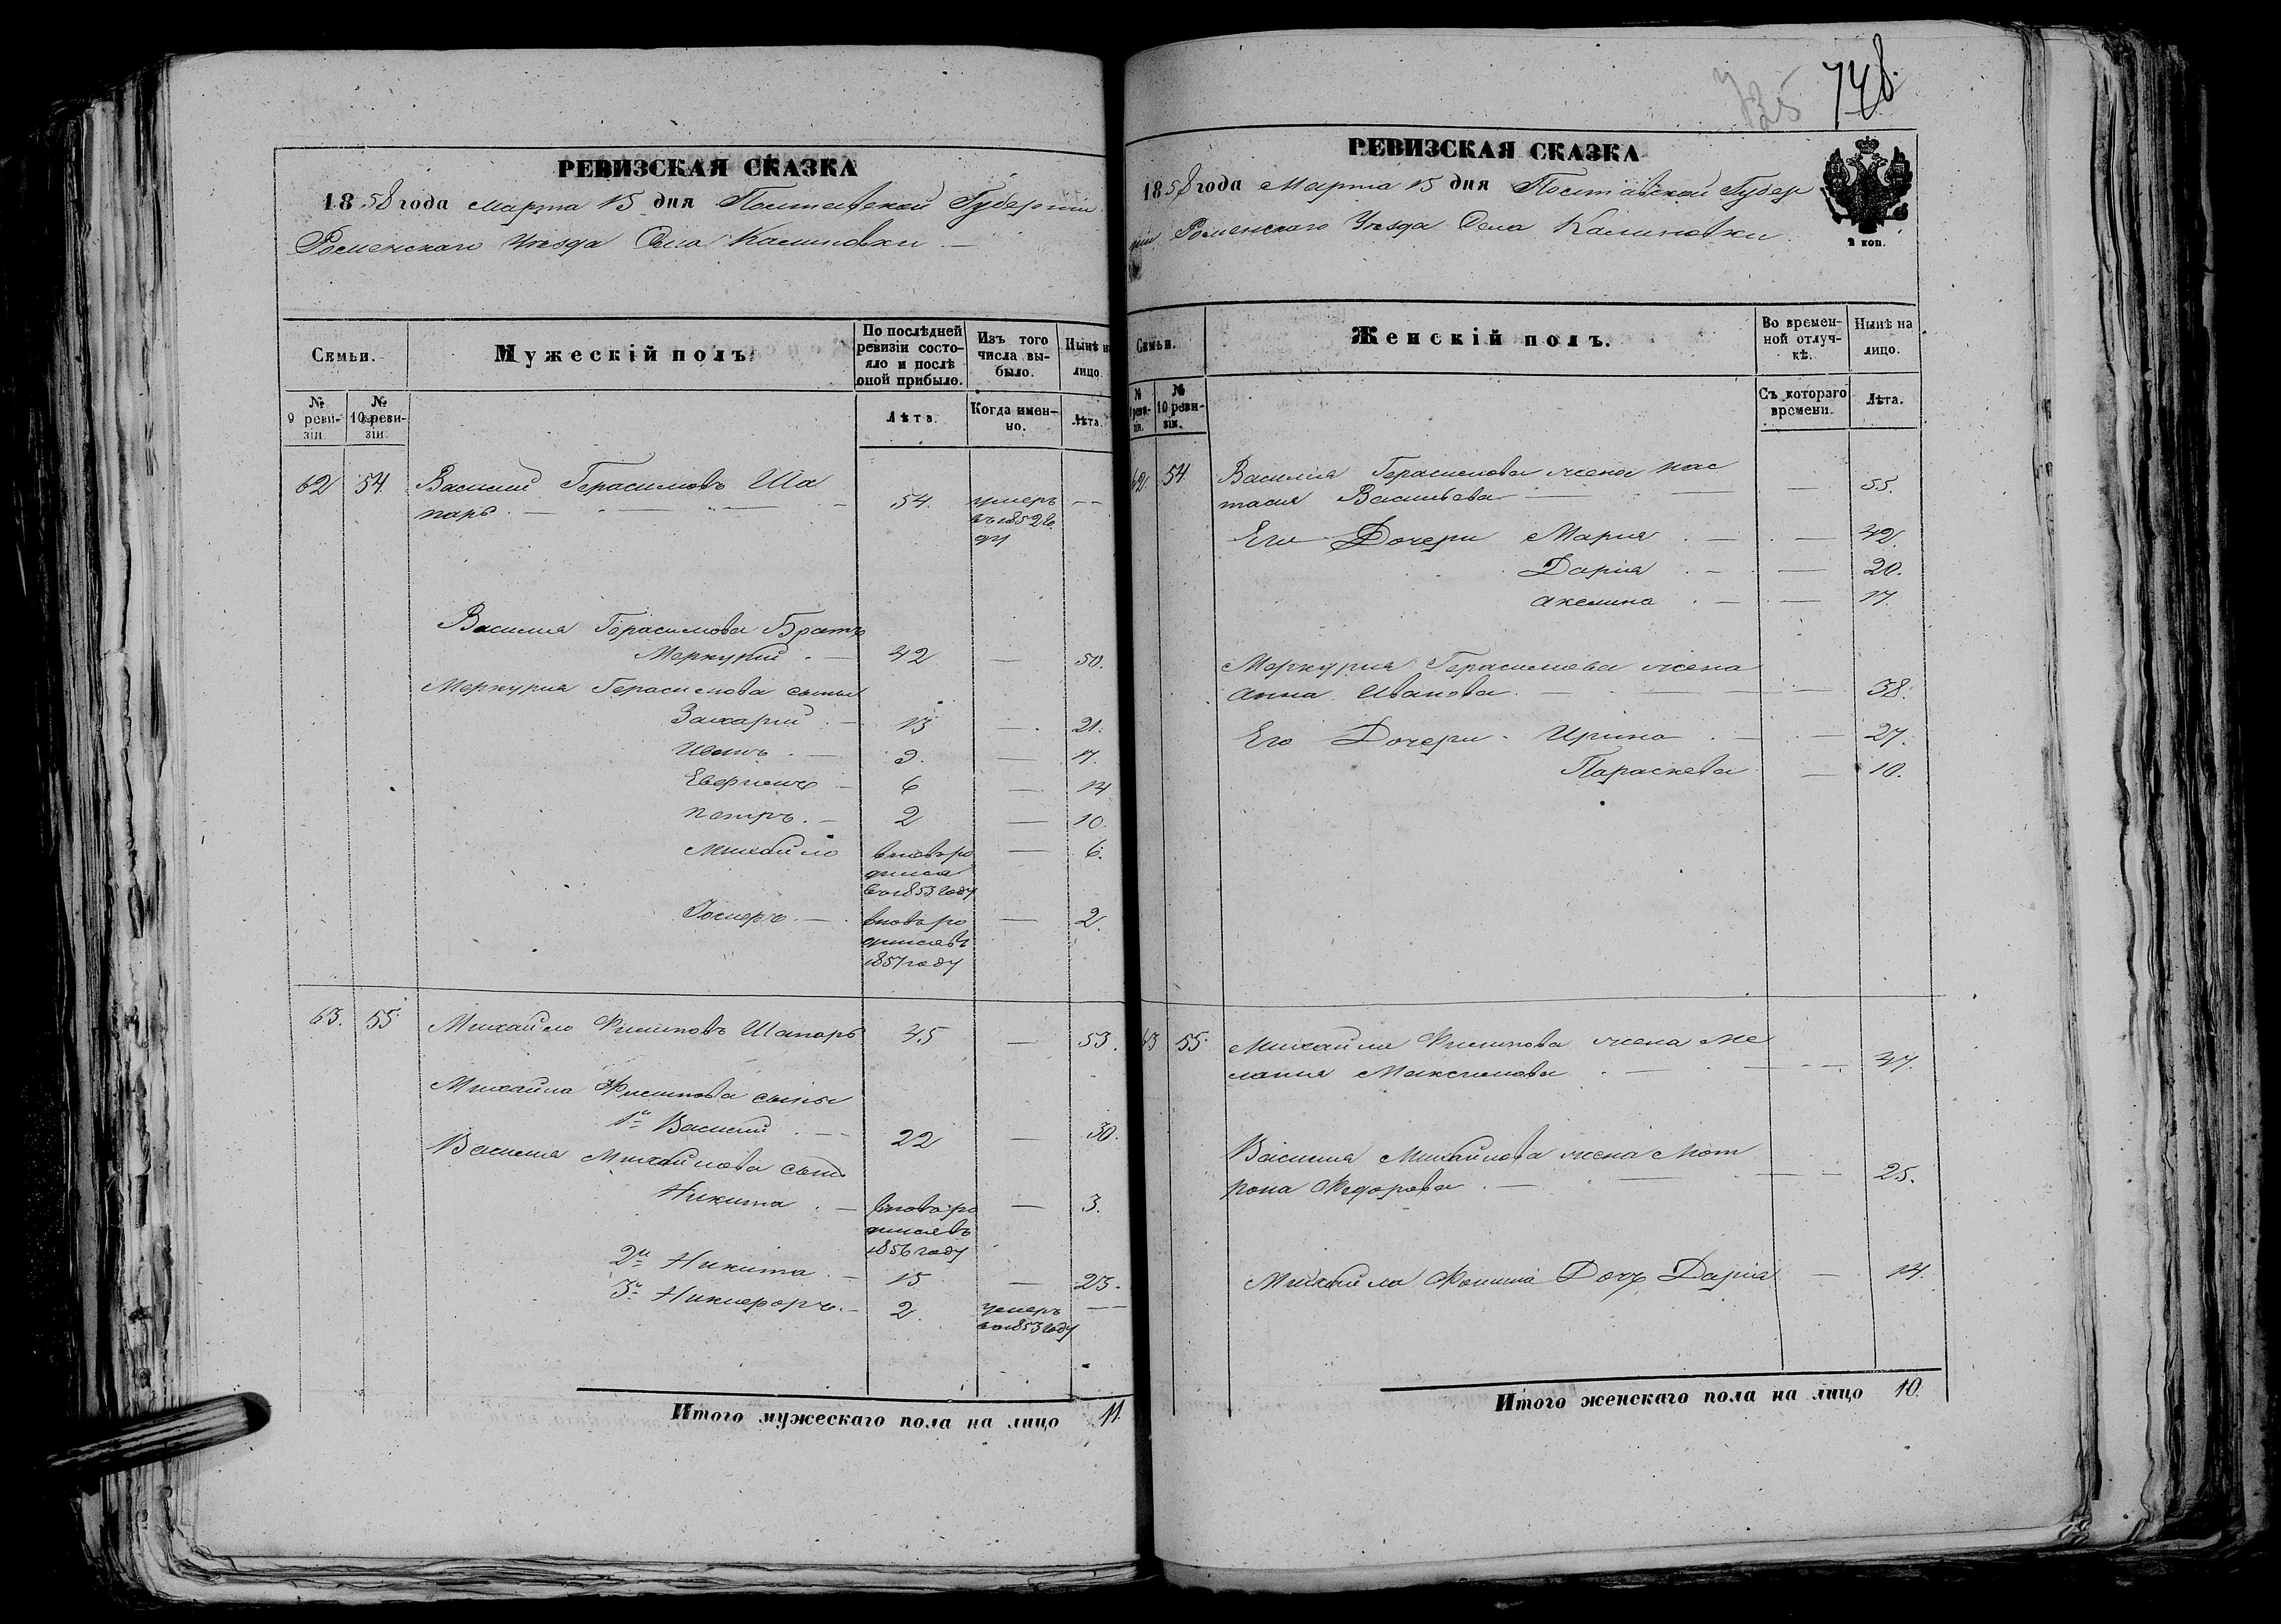 РЕВИЗСКАЯ СКАЗКА
1858 года Марта 15 дня Полтавской Губерніи
Роменскаго Уезда Села Калиновки
Семьи.
Мужескій полъ.
По послѣдней ревизіи состояло и послѣ оной прибыло.
Изъ того числа выбыло.
Нынѣ на лицо.
№ 9 ревизіи.
№ 10 ревизіи.
Лѣта.
Когда именно.
Лѣта.
62 54 Василий Герасимовъ Ша
паръ 54. умеръ
въ 1852 го
ду
Василия Герасимова Братъ
Меркурий 42 — 50.
Меркурия Герасимова сыны
Захарий 13 — 21.
Иванъ 9. — 17.
6 — 14
Петръ 2 — 10.
Михайло вновь ро — 6.
дился
во 1853 году
вновь ро — 2.
дился въ
1857 году
63. 55 Михайло Филиповъ Шапоръ 45 — 53.
Михайла Филипова сыны
1й Василий 22 — 30.
Василия Михайлова сынъ
Никита вновь ро — 3.
дился въ
1856 году
2й Никита 15 — 23.
3й Никифоръ 2. умеръ
во 1853 году
Итого мужескаго пола на лицо 11.
735 748.
РЕВИЗСКАЯ СКАЗКА
1858 года Марта 15 дня Полтавской Губер
ніи Роменскаго Уезда Села Калиновки.
2 коп.
Семьи.
Женскій полъ.
Во временной отлучкѣ.
Нынѣ на лицо.
№ 9 ревизіи.
№ 10 ревизіи.
Съ котораго времени.
Лѣта.
62. 54. Василия Герасимова жена Нас
тасия Васильева — 55.
Его Дочери Мария — 42.
Дария — 20.
Акелина — 17.
Меркурия Герасимова жена
Анна Иванова — 38.
Его Дочери Ирина — 27.
Параскева — 10.
63 55. Михайла Филипова жена Ме
лания Максимова — 47.
Василия Михайлова жена Мот
рона Федорова — 25.
Михайла Дочь Дария — 14.
Итого женскаго пола на лицо 10.